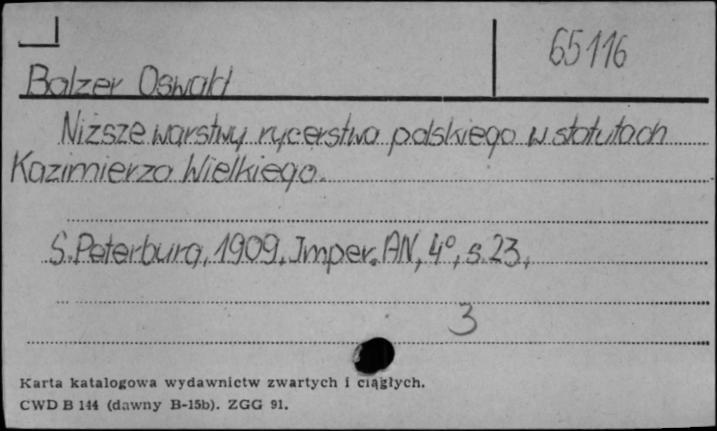 65116
Balzer Oswald
Niższe warstwy rycerstwa polskiego w statutach
Kazimierza Wielkiego.
S. Peterburg, 1909, Imper. AN, 4°, s. 23,
3
Karta katalogowa wydawnictw zwartych i ciągłych.
CWD B 144 (dawny B-15b). ZGG 91.